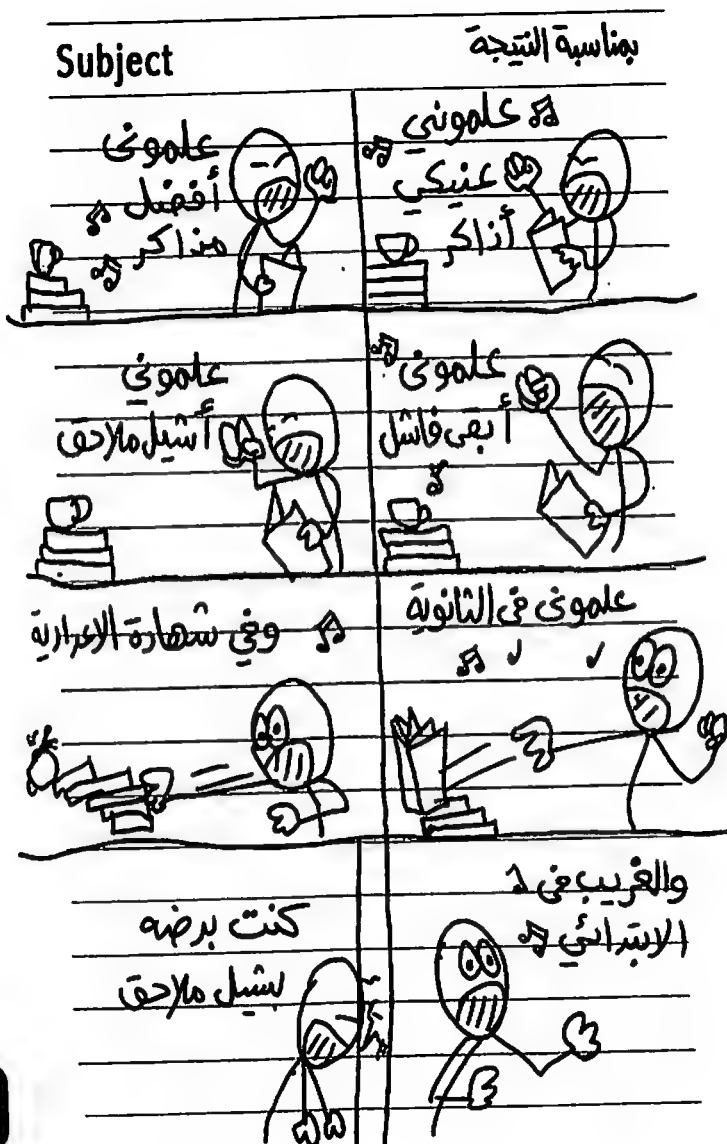 Subject
بمناسبة النتيجة
علموني
عنيكي
أذاكر
علمونى
أفضل
مذاكر
علمونى
أبقى فاشل
علموني
أشيل ملاحق
علمونى فى الثانوية
وفي شهادة الاعدادية
والغريب فى
الابتدائي
كنت برضه
بشيل ملاحق